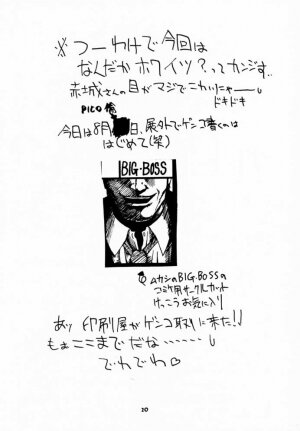 ※つーわけで今回は
なんだかホワイツ？ってカンジす..
赤城さんの目がマジでこわいにゃー
ドキドキ
PICO俺
今日は8月 日、屋外でゲンコ書くのは
はじめて(笑)
BIG・BOSS
ムカシのBIG・BOSSの
コミケ用サークルカット
けっこうお気に入り
あっ 印刷屋がゲンコ取りに来た!!
もぉ ここまでだな……
でわでわ♡
20